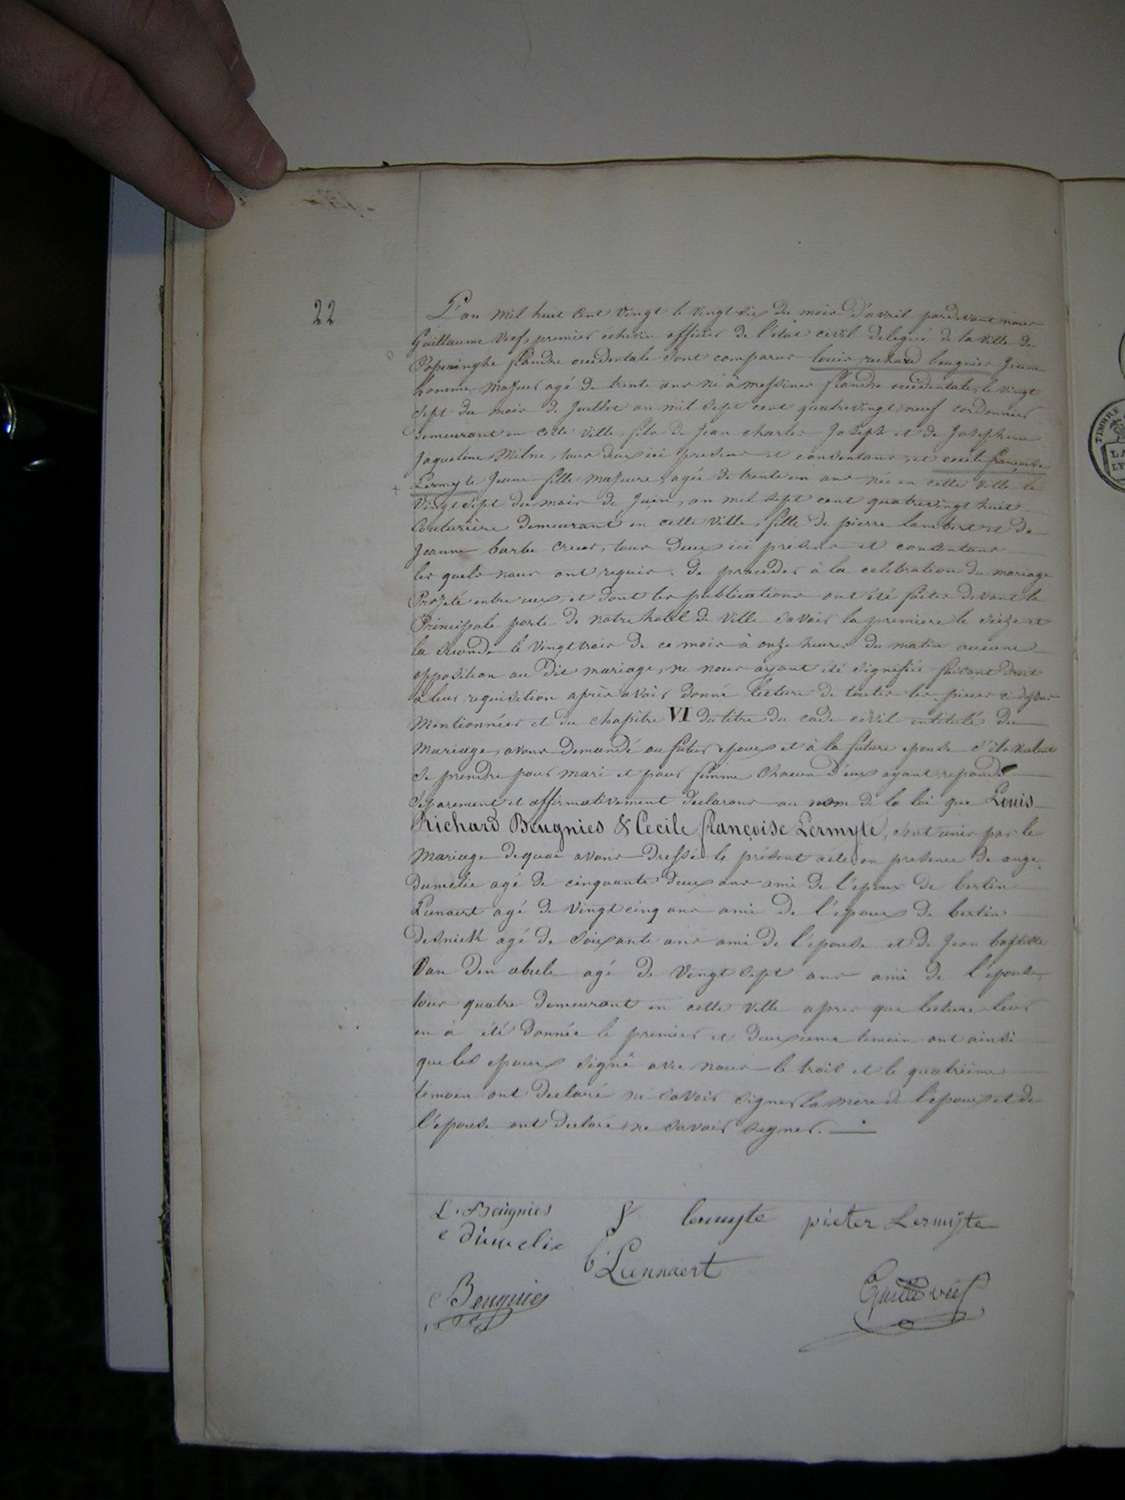 22
L'an mil huit cent vingt le vingt six du mois d'avril pardevant nous
Guillaume Vief, premier echevin officier de l'état civil delegué de la ville de
Poperinghe flandre occidentale sont comparus louis richard beugnies Jeune
homme, majeur agé de trente ans né à messines flandre occidentale, le vingt
sept du mois de Juillet an mil sept cent quatrevingt neuf cordonnier
demeurant en cette ville, fils de Jean charles Joseph et de Josephine
Jaqueline Milne, tous deux ici présens et consentans, et cecile françoise
Lermyte Jeune fille majeure, agée de trente un ans née en cette ville le
vingt sept du mois de Juin, an mil sept cent quatrevingt huit
Couturière demeurant en cette ville, fille de pierre lambert et de
Jeanne barbe tous deux ici présens et consentans
les quels nous ont requis de proceder à la celebration du mariage
Projeté entre eux, et dont les publications ont été faites devant la
Principale porte de notre hotel de ville savoir la premiere le seize et
la seconde le vingt trois de ce mois à onze heures du matin aucune
opposition au dit mariage, ne nous ayant été signifiée faisant droit
à leur requisition après avoir donné lecture de toutes les pieces ci dessus
Mentionnées et du chapitre VI du titre du code civil intitulé du
Mariage, avons demandé au futur epoux et à la future epouse s'ils veulent
se prendre pour mari et pour femme chacun d'eux ayant repondu
séparement et affirmativement declarons au nom de la loi que Louis
Richard Beugnies & Cecile françoise Lermyte, sont unis par le
Mariage de quoi avons dressé le présent acte en presence de ange
dumelie agé de cinquante deux ans ami de l'epoux de bertin
Lienaert agé de vingt cinq ans ami de l'epoux de bertin
desnick agé de soixante ans ami de l'epouse et de Jean baptiste
Van den abeele agé de vingt sept ans ami de l'epouse,
tous quatre demeurant en cette ville apres que lecture leur
en à été donnée le premier et deuxieme temoin ont ainsi
que les epoux signé avec nous le trois et le quatrieme
temoin ont declaré ne savoir signer la mere de l'epoux et de
l'epouse ont declaré ne savoir signer.
L. Beugnies lermyte pieter Lermyte
Lienaert
Beugnies Guille Vief